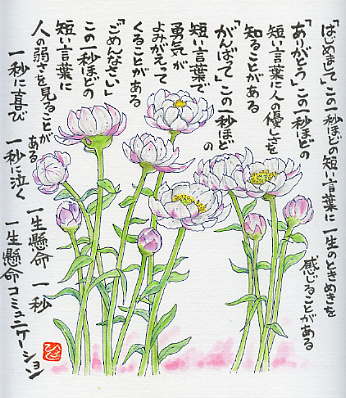 「はじめまして」この一秒ほどの短い言葉に 一生のときめきを
感じることがある
「ありがとう」この一秒ほどの
短い言葉に人の優しさを
知ることがある
「がんばって」この一秒ほどの
短い言葉で
勇気が
よみがえって
くることがある
「ごめんなさい」
この一秒ほどの
短い言葉に
人の弱さを見ることが
ある
一秒に喜び 一秒に泣く
一生懸命 一秒
一生懸命コミュニケーション